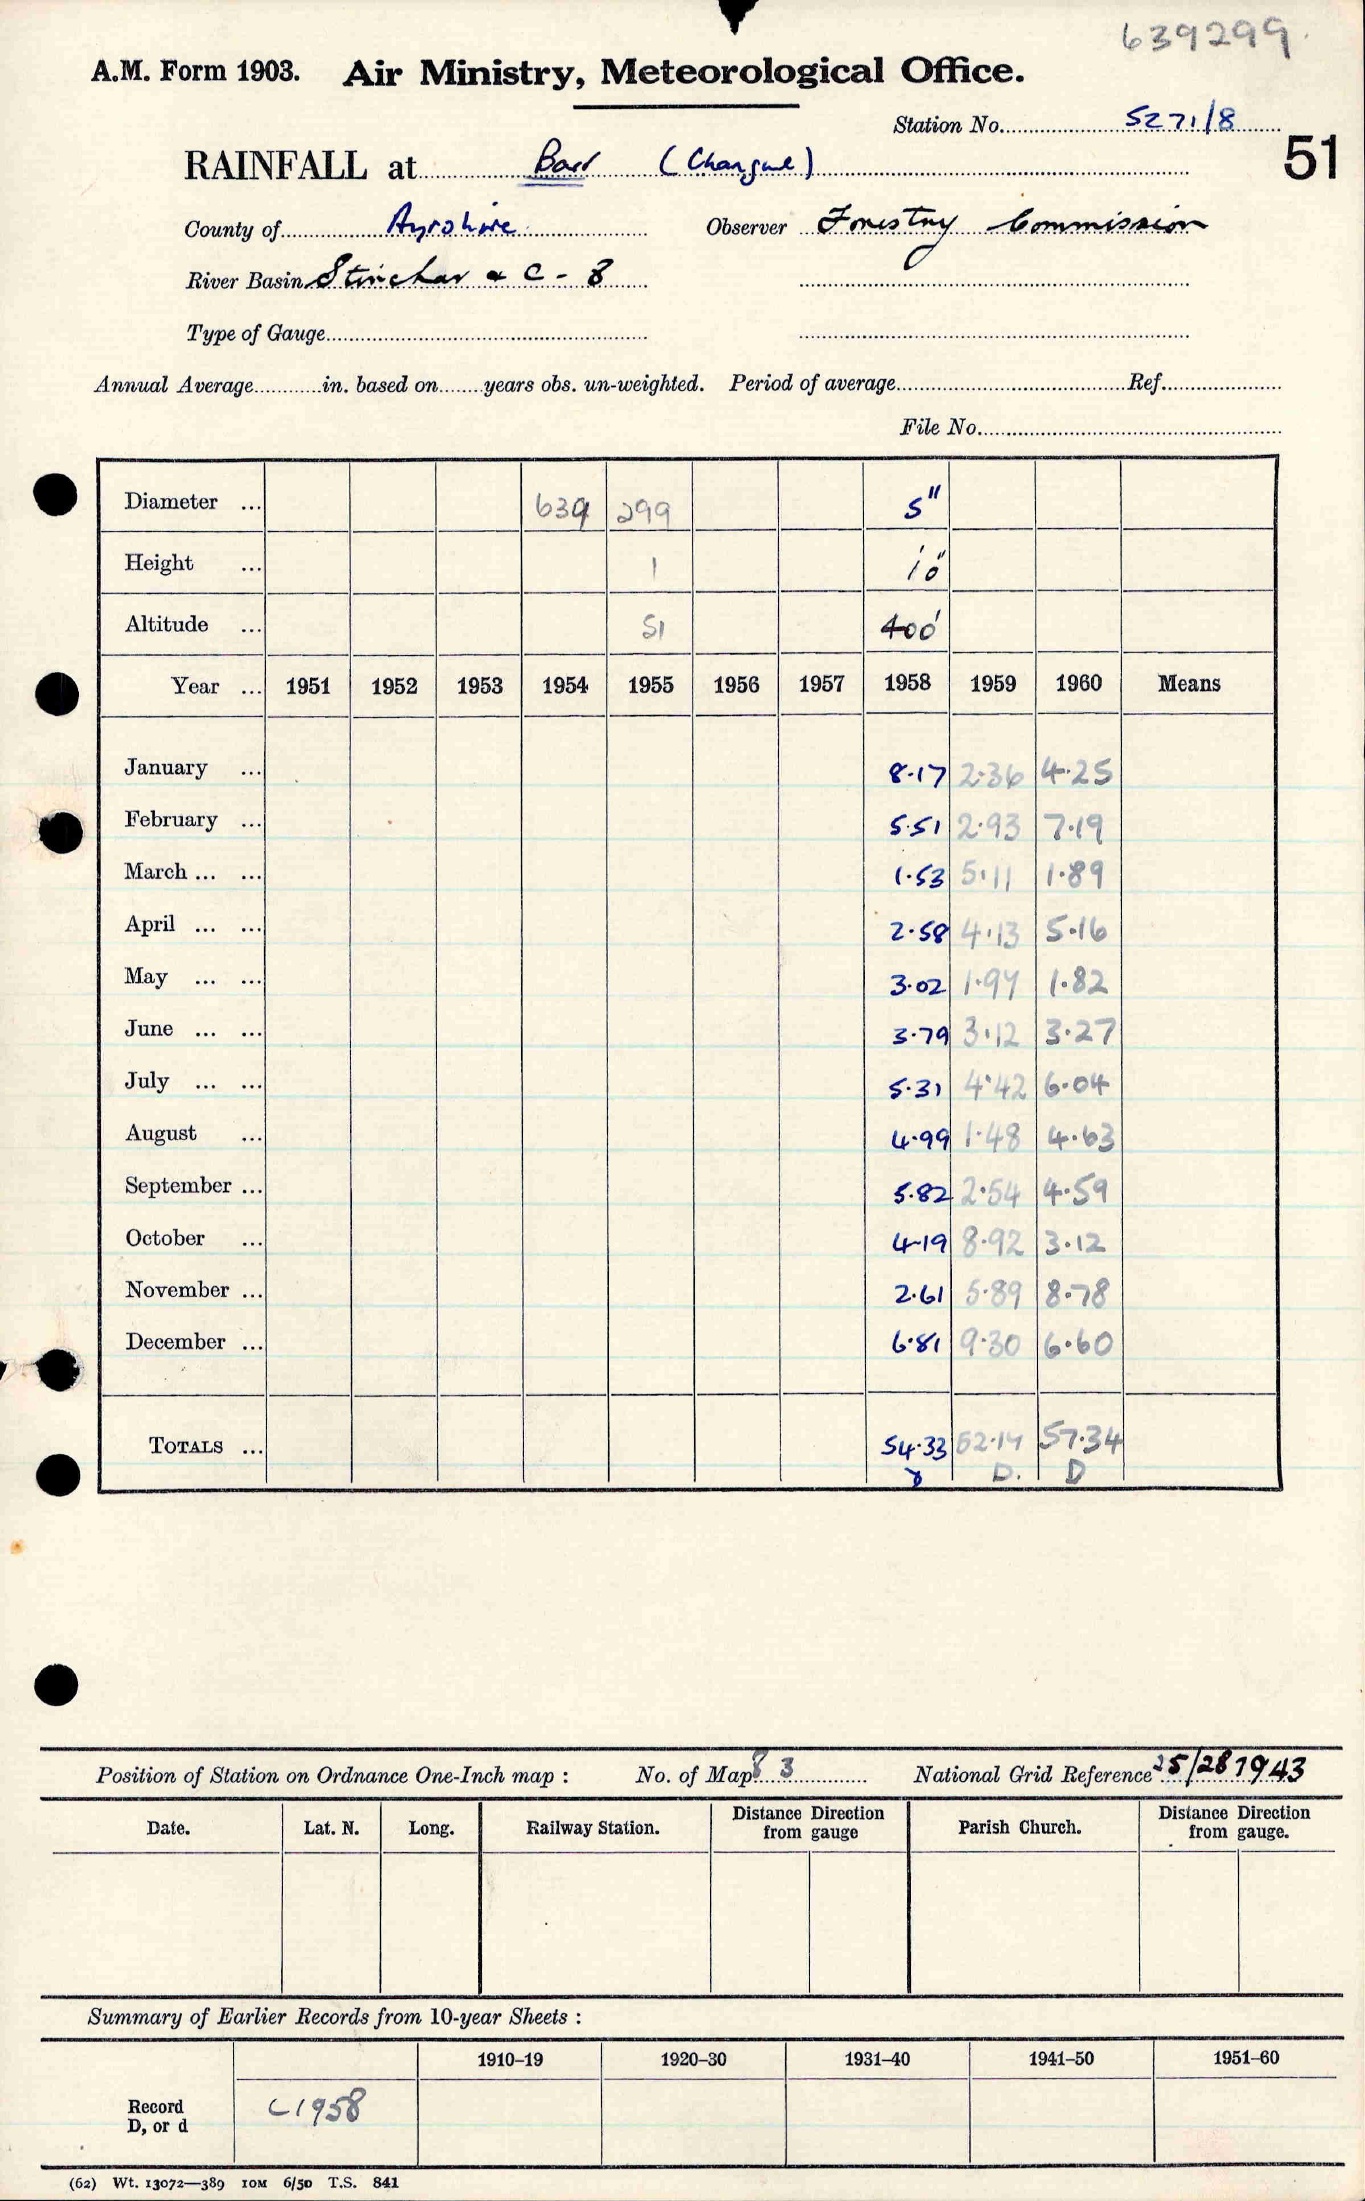 639299
A.M. Form 1903. Air Ministry, Meteorological Office.
Station No. 5271/8
51
RAINFALL at Barr (Changue)
County of Ayrshire Observer Forestry Commission
River Basin Stinchar & C - 8
Type of Gauge
Annual Average in. based on years obs. un-weighted. Period of average Ref.
File No.
Diameter ... 639 299 5"
Height ... 1 1'0"
Altitude ... 51 400'
Year ... 1951 1952 1953 1954 1955 1956 1957 1958 1959 1960 Means
January ... 8.17 2.36 4.25
February ... 5.51 2.93 7.19
March ... ... 1.53 5.11 1.89
April ... ... 2.58 4.13 5.16
May ... ... 3.02 1.94 1.82
June ... ... 3.79 3.12 3.27
July ... ... 5.31 4.42 6.04
August ... 4.99 1.48 4.63
September ... 5.82 2.54 4.59
October ... 4.19 8.92 3.12
November ... 2.61 5.89 8.78
December ... 6.81 9.30 6.60
TOTALS ... 54.33 52.14 57.34
D. D
Position of Station on Ordnance One-Inch map : No. of Map 83 National Grid Reference
Date. Lat. N. Long. Railway Station. Distance Direction from gauge Parish Church. Distance Direction from gauge.
Summary of Earlier Records from 10-year Sheets :
1910–19 1920–30 1931–40 1941–50 1951–60
Record
D, or d
1958
(62) Wt. 13072—389 10M 6/50 T.S. 841